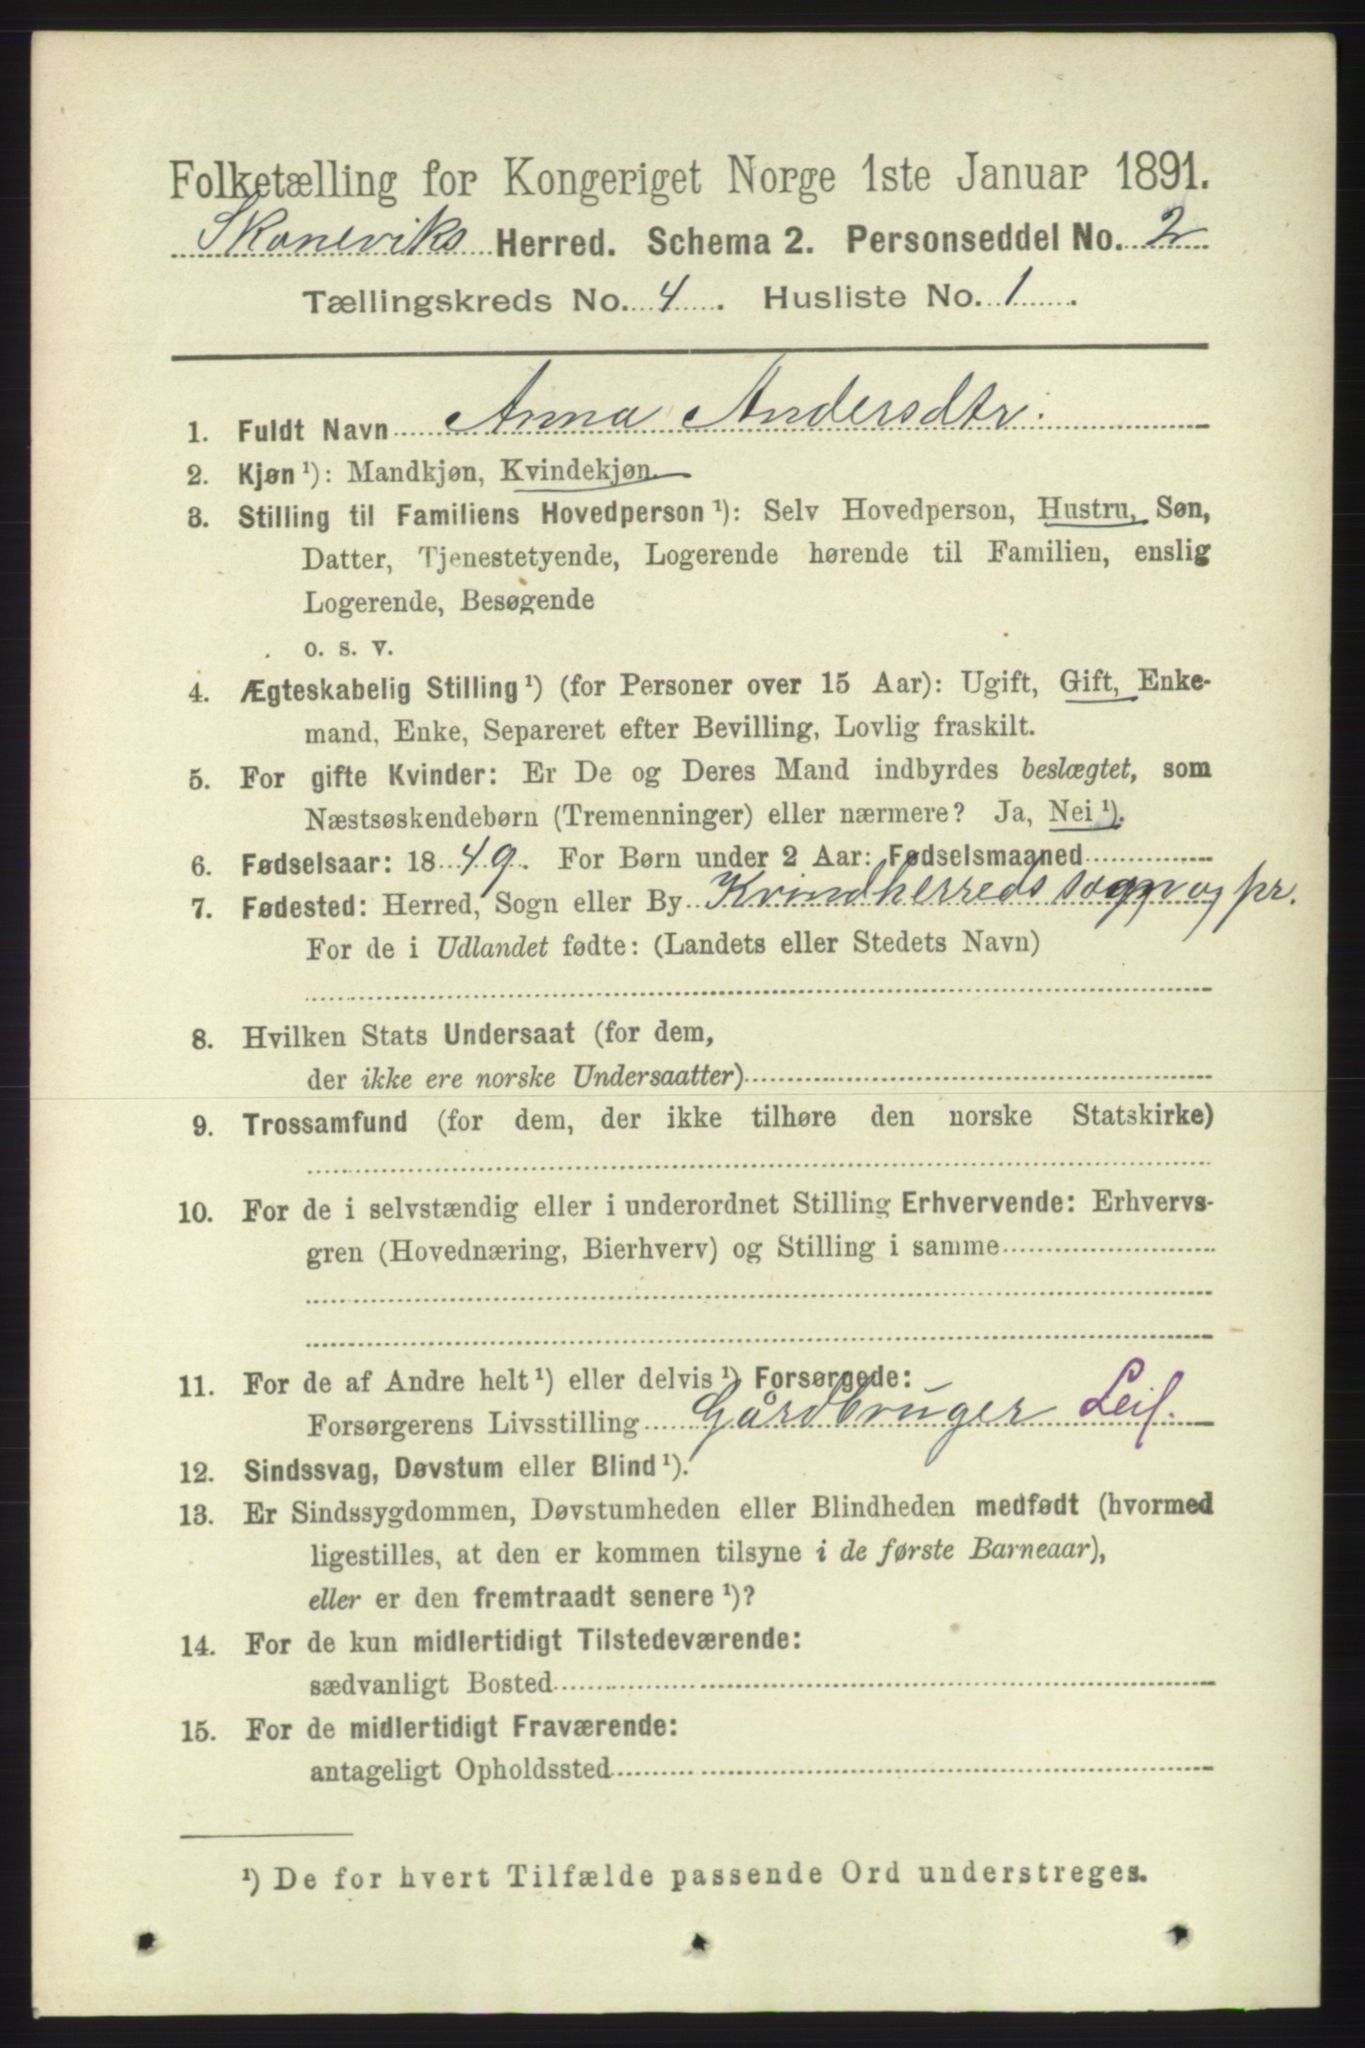 Folketælling for Kongeriget Norge 1ste Januar 1891.
Skaneviks Herred. Schema 2. Personseddel No. 2
Tællingskreds No. 4. Husliste No. 1.
1. Fuldt Navn Anna Andersdtr.
2. Kjøn ¹): Mandkjøn, Kvindekjøn.
3. Stilling til Familiens Hovedperson ¹): Selv Hovedperson, Hustru, Søn,
Datter, Tjenestetyende, Logerende hørende til Familien, enslig
Logerende, Besøgende
o. s. v.
4. Ægteskabelig Stilling ¹) (for Personer over 15 Aar): Ugift, Gift, Enke-
mand, Enke, Separeret efter Bevilling, Lovlig fraskilt.
5. For gifte Kvinder: Er De og Deres Mand indbyrdes beslægtet, som
Næstsøskendebørn (Tremenninger) eller nærmere? Ja, Nei ¹).
6. Fødselsaar: 1849. For Børn under 2 Aar: Fødselsmaaned
7. Fødested: Herred, Sogn eller By Kvindherreds sogn og pr.
For de i Udlandet fødte: (Landets eller Stedets Navn)
8. Hvilken Stats Undersaat (for dem,
der ikke ere norske Undersaatter)
9. Trossamfund (for dem, der ikke tilhøre den norske Statskirke)
10. For de i selvstændig eller i underordnet Stilling Erhvervende: Erhvervs-
gren (Hovednæring, Bierhverv) og Stilling i samme
11. For de af Andre helt ¹) eller delvis ¹) Forsørgede:
Forsørgerens Livsstilling Gårdbruger Leil.
12. Sindssvag, Døvstum eller Blind ¹).
13. Er Sindssygdommen, Døvstumheden eller Blindheden medfødt (hvormed
ligestilles, at den er kommen tilsyne i de første Barneaar),
eller er den fremtraadt senere ¹)?
14. For de kun midlertidigt Tilstedeværende:
sædvanligt Bosted
15. For de midlertidigt Fraværende:
antageligt Opholdssted
¹) De for hvert Tilfælde passende Ord understreges.